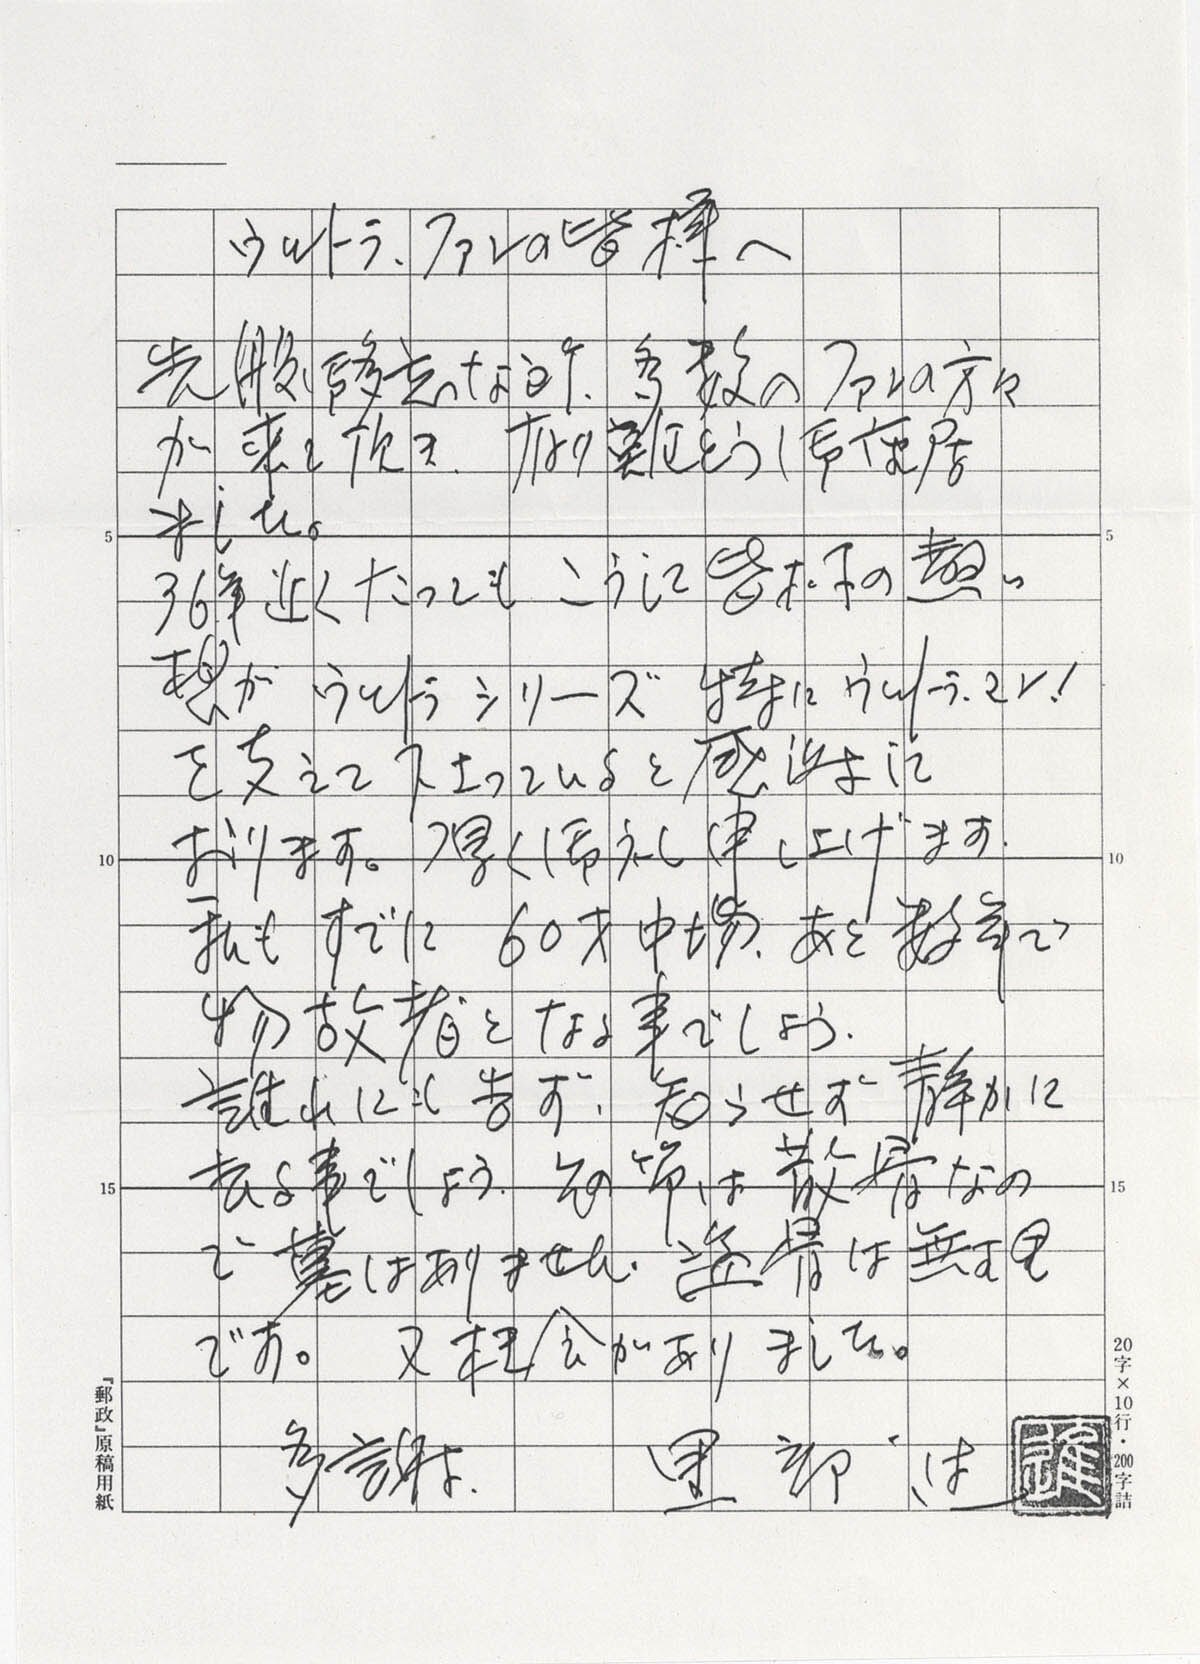 ウルトラ、ファンの皆様へ
先般 多数のファンの方々
が来て頂き、有り難とう御座居
ました。
36年近くたってもこうして皆様の熱い
想が ウルトラシリーズ 特にウルトラ・マン!
を支えて下さっていると感じまして
おります。厚く御礼し申し上げます。
私もすでに 60才中場、あと数年で
物故者となる事でしょう。
誰れにも告ず、知らせず静かに
去る事でしょう。その節は散骨なの
で墓はありません。盗骨は無理
です。 又機会がありました。
多謝。 黒部 進
5
10
15
5
10
15
20字×10行・200字詰
『郵政』原稿用紙